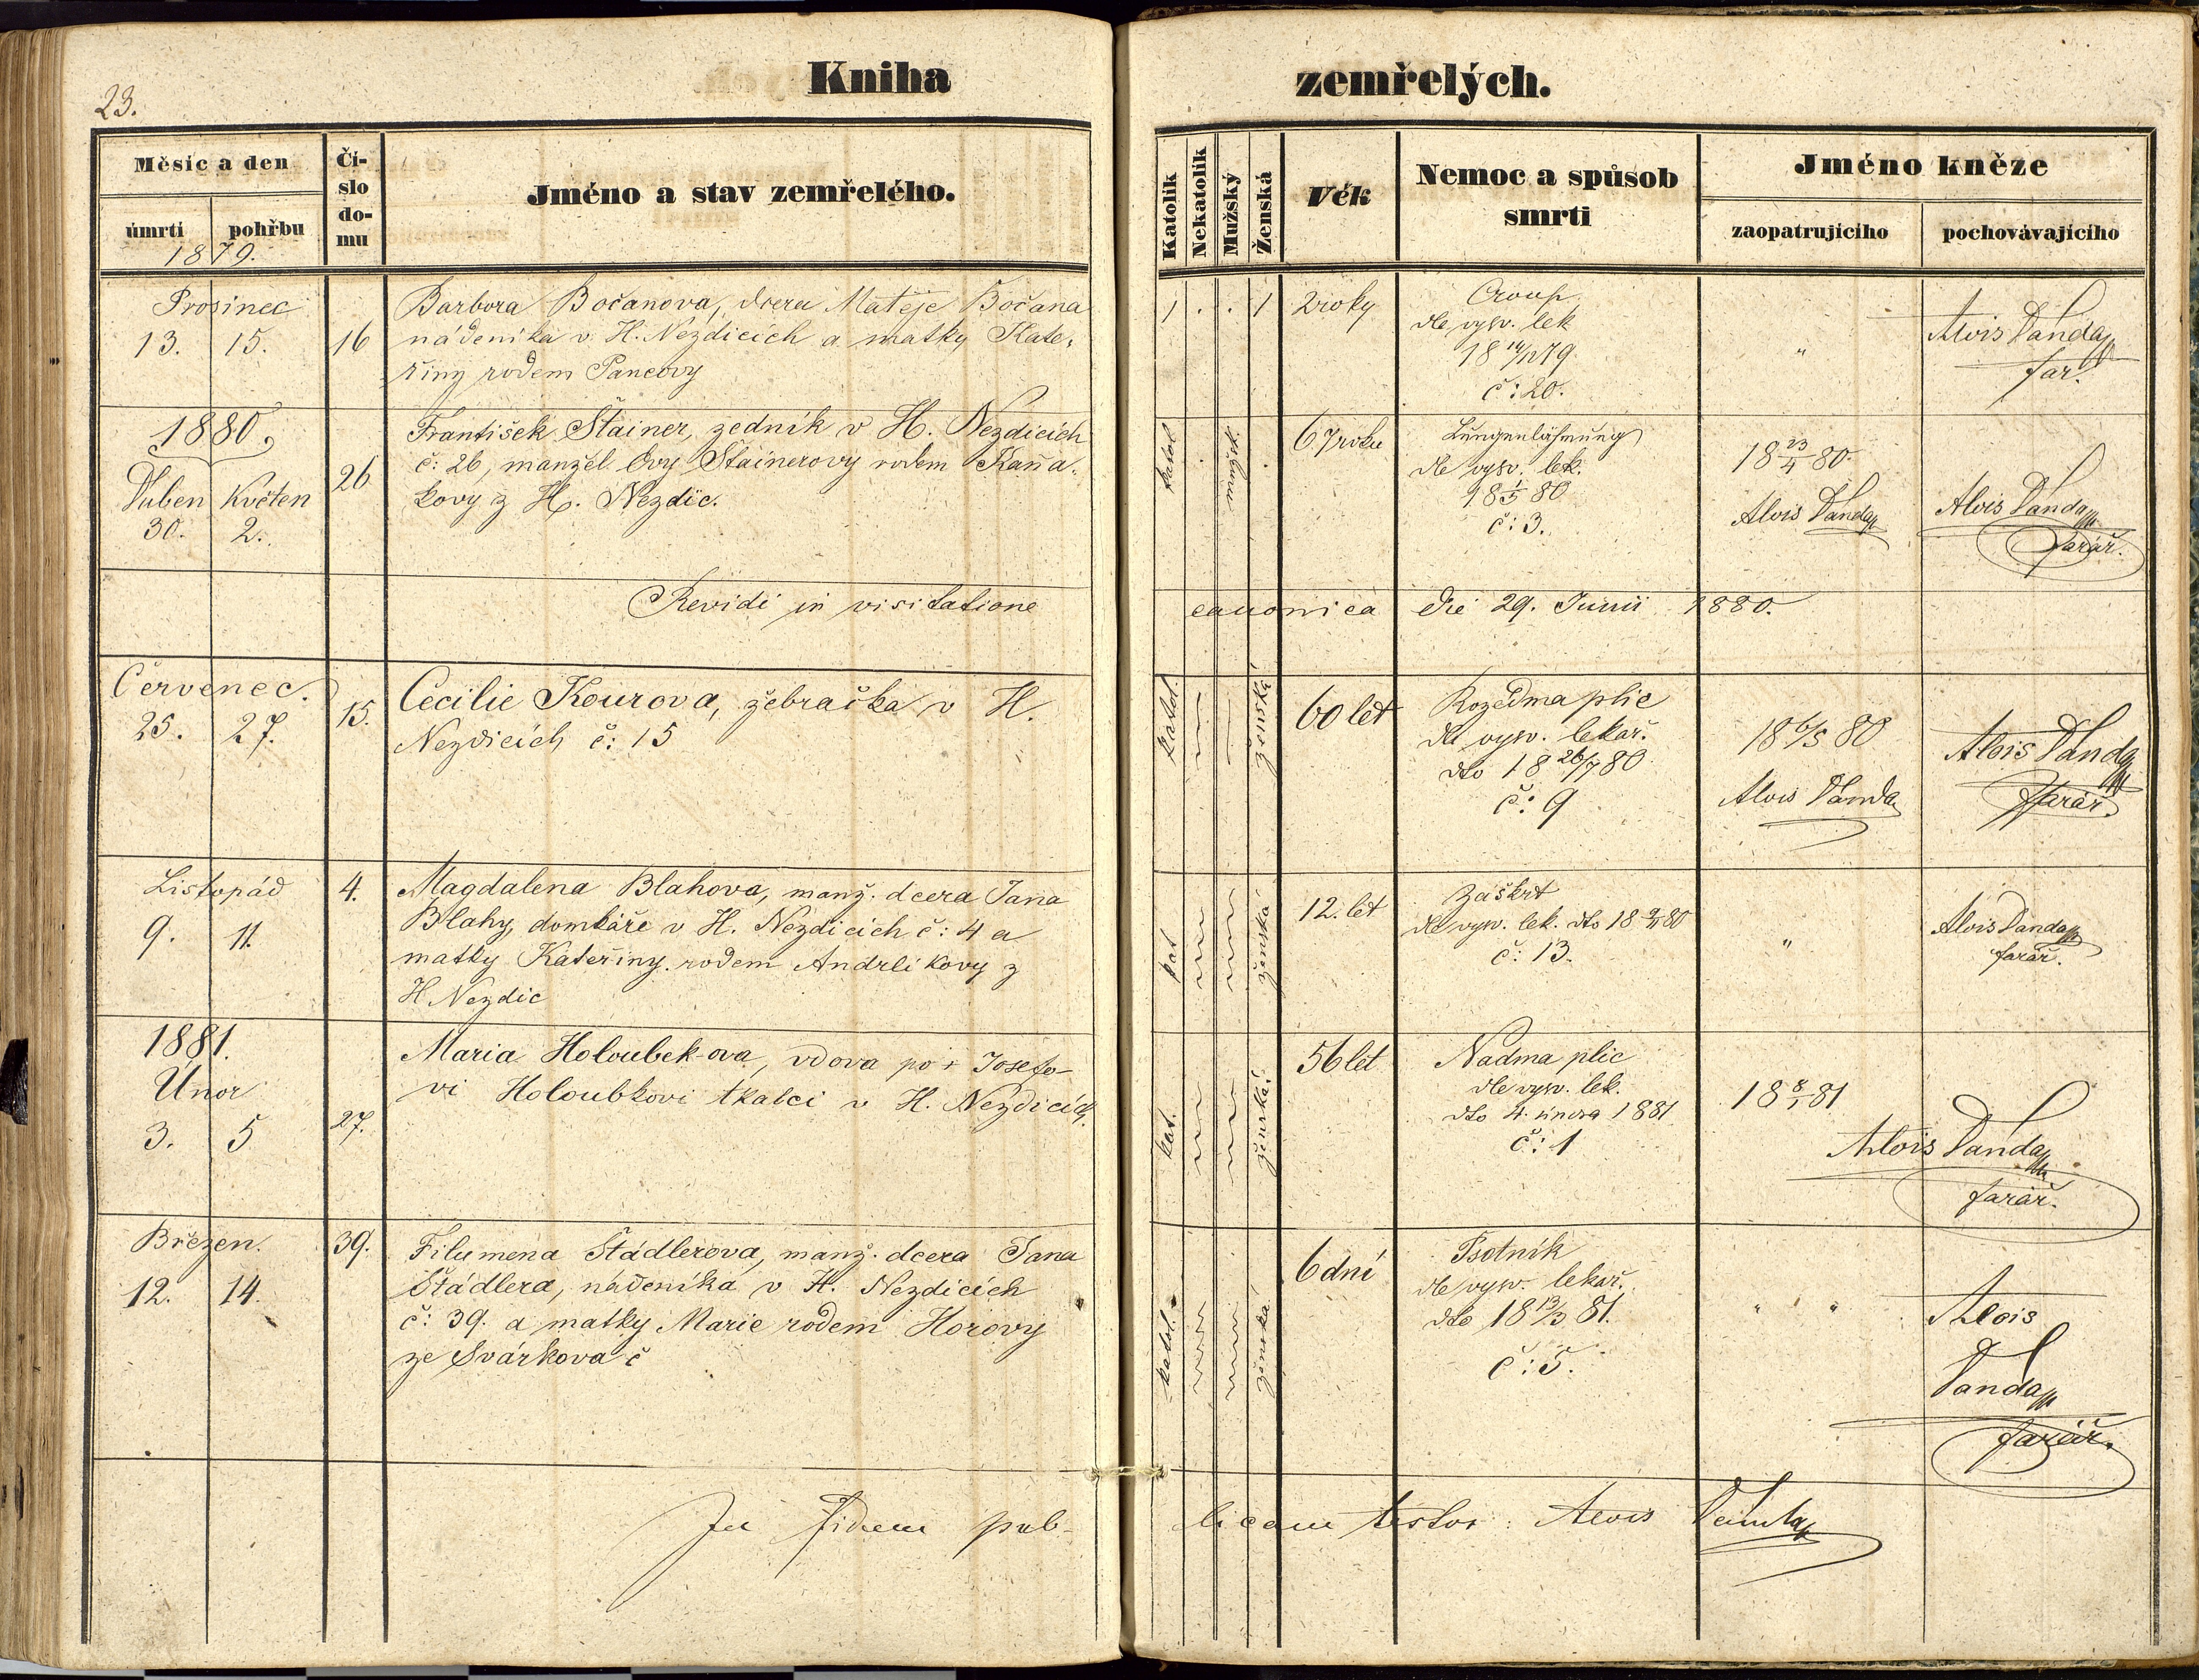 23.
Kniha
zemřelých.
Měsíc a den
úmrtí
pohřbu
1879.
Čí-
slo
do-
mu
Jméno a stav zemřelého.
Katolík
Nekatolík
Mužský
Ženská
Věk
Nemoc a spůsob
smrti
Jméno kněze
zaopatrujícího
pochovávajícího
Prosinec
13. 15.
16
Barbora Bočanova, dcera Matěje Bočana
nádeníka v H. Nezdicích a matky Kate-
řiny rodem Pancovy
1 . . 1
2 roky
Croup
dle vysv. lek
18 14/12 79
č: 20.
"
Alois Vanda
far.
1880
Duben Květen
30. 2.
26
František Štainer, zedník v H. Nezdicích
č: 26, manžel Evy Štainerovy rodem Kaňa-
kovy z H. Nezdic.
katol
.
mužsk.
.
67 roku
Lungenlähmung
dle vysv. lek.
18 1/5 80
č: 3.
18 23/4 80.
Alois Vanda
Alois Vanda
farář.
Revidi in visitatione
canonica die 29. Junii 1880.
Červenec.
25. 27.
15.
Cecilie Kourova, žebračka v H.
Nezdicích č: 15
katol.
ženská
60 let
Rozedma plic
dle vysv. lekař.
dto 18 26/7 80
č: 9
18 6/5 80
Alois Vanda
Alois Vanda
farář.
Listopád
9. 11.
4.
Magdalena Blahova, manž. dcera Jana
Blahy, domkáře v H. Nezdicích č: 4 a
matky Kateřiny rodem Andrlíkovy z
H. Nezdic
kat
ženská
12. let
Záškrt
dle vysv. lek. dto 18 9/11 80
č: 13.
"
Alois Vanda
farář.
1881.
Únor
3. 5
27.
Maria Holoubek-ova, vdova po + Josefo-
vi Holoubkovi tkalci v H. Nezdicích.
kat.
ženská
56 let
Nadma plic
dle vysv. lek.
dto 4. února 1881
č: 1
18 8/1 81
Alois Vanda
farář.
Březen.
12. 14.
39.
Filumena Štádlerova, manž. dcera Jana
Štádlera, nádeníka v H. Nezdicích
č: 39. a matky Marie rodem Horovy
ze Svárkova č
katol.
ženská
6 dní
Psotník
dle vysv. lekař.
dto 18 13/3 81.
č: 5.
" "
Alois
Vanda
farář.
In fidem pub-
licam testor: Alois Vanda